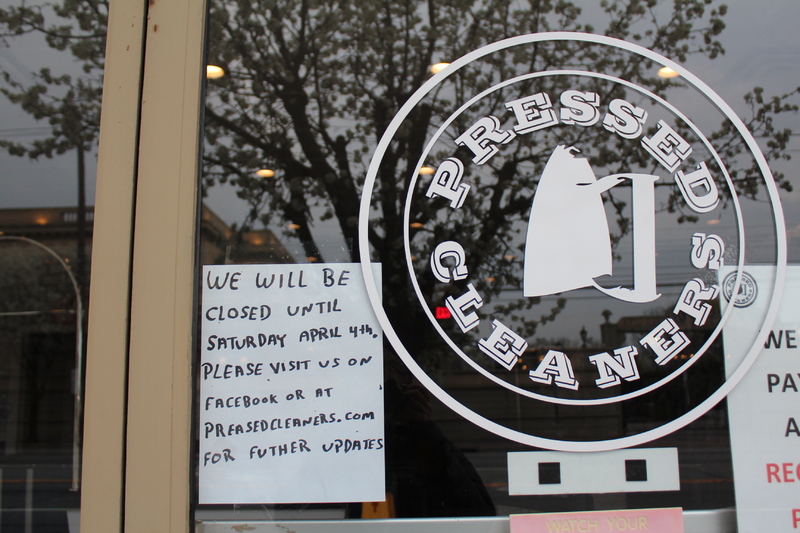 PRESSED
CLEANERS
WE WILL BE
CLOSED UNTIL
SATURDAY APRIL 4th.
PLEASE VISIT US ON
FACEBOOK OR AT
PREASEDCLEANERS.COM
FOR FUTHER UPDATES
WE
PAY
A
REC
P
WATCH YOUR